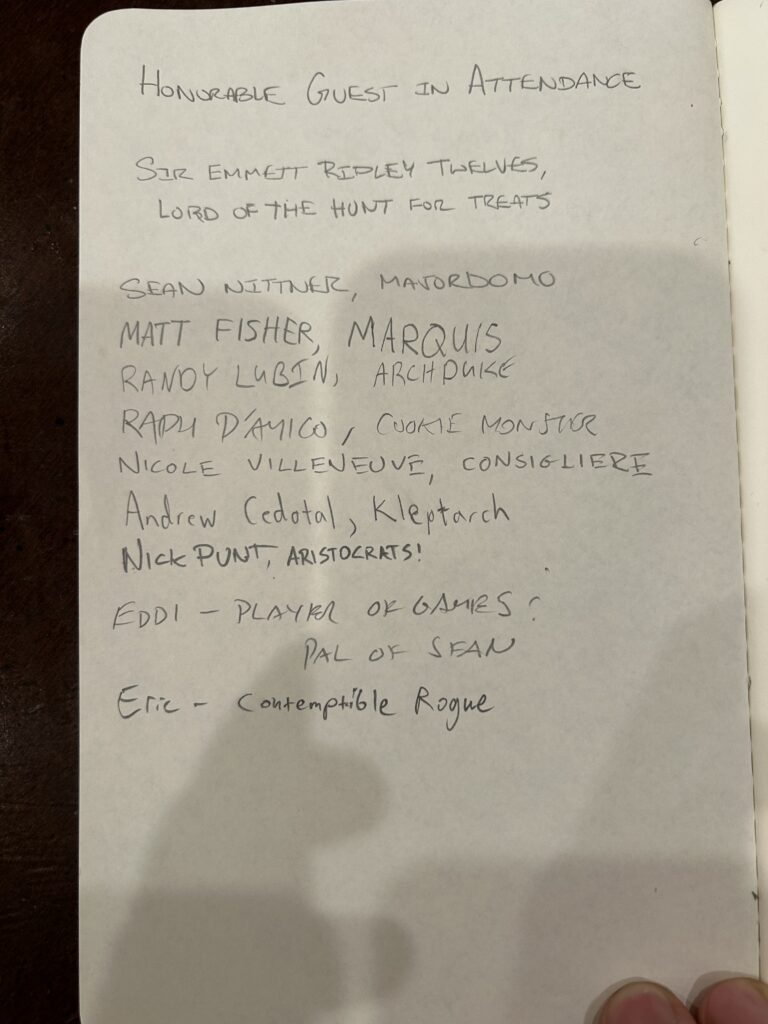 HONORABLE GUEST IN ATTENDANCE
SIR EMMETT RIPLEY TWELVES,
LORD OF THE HUNT FOR TREATS
SEAN NITTNER, MAJORDOMO
MATT FISHER, MARQUIS
RANDY LUBIN, ARCHDUKE
RAPH D'AMICO, COOKIE MONSTER
NICOLE VILLENEUVE, CONSIGLIERE
Andrew Cedotal, Kleptarch
NICK PUNT, ARISTOCRATS!
EDDI - PLAYER OF GAMES &
PAL OF SEAN
Eric - Contemptible Rogue